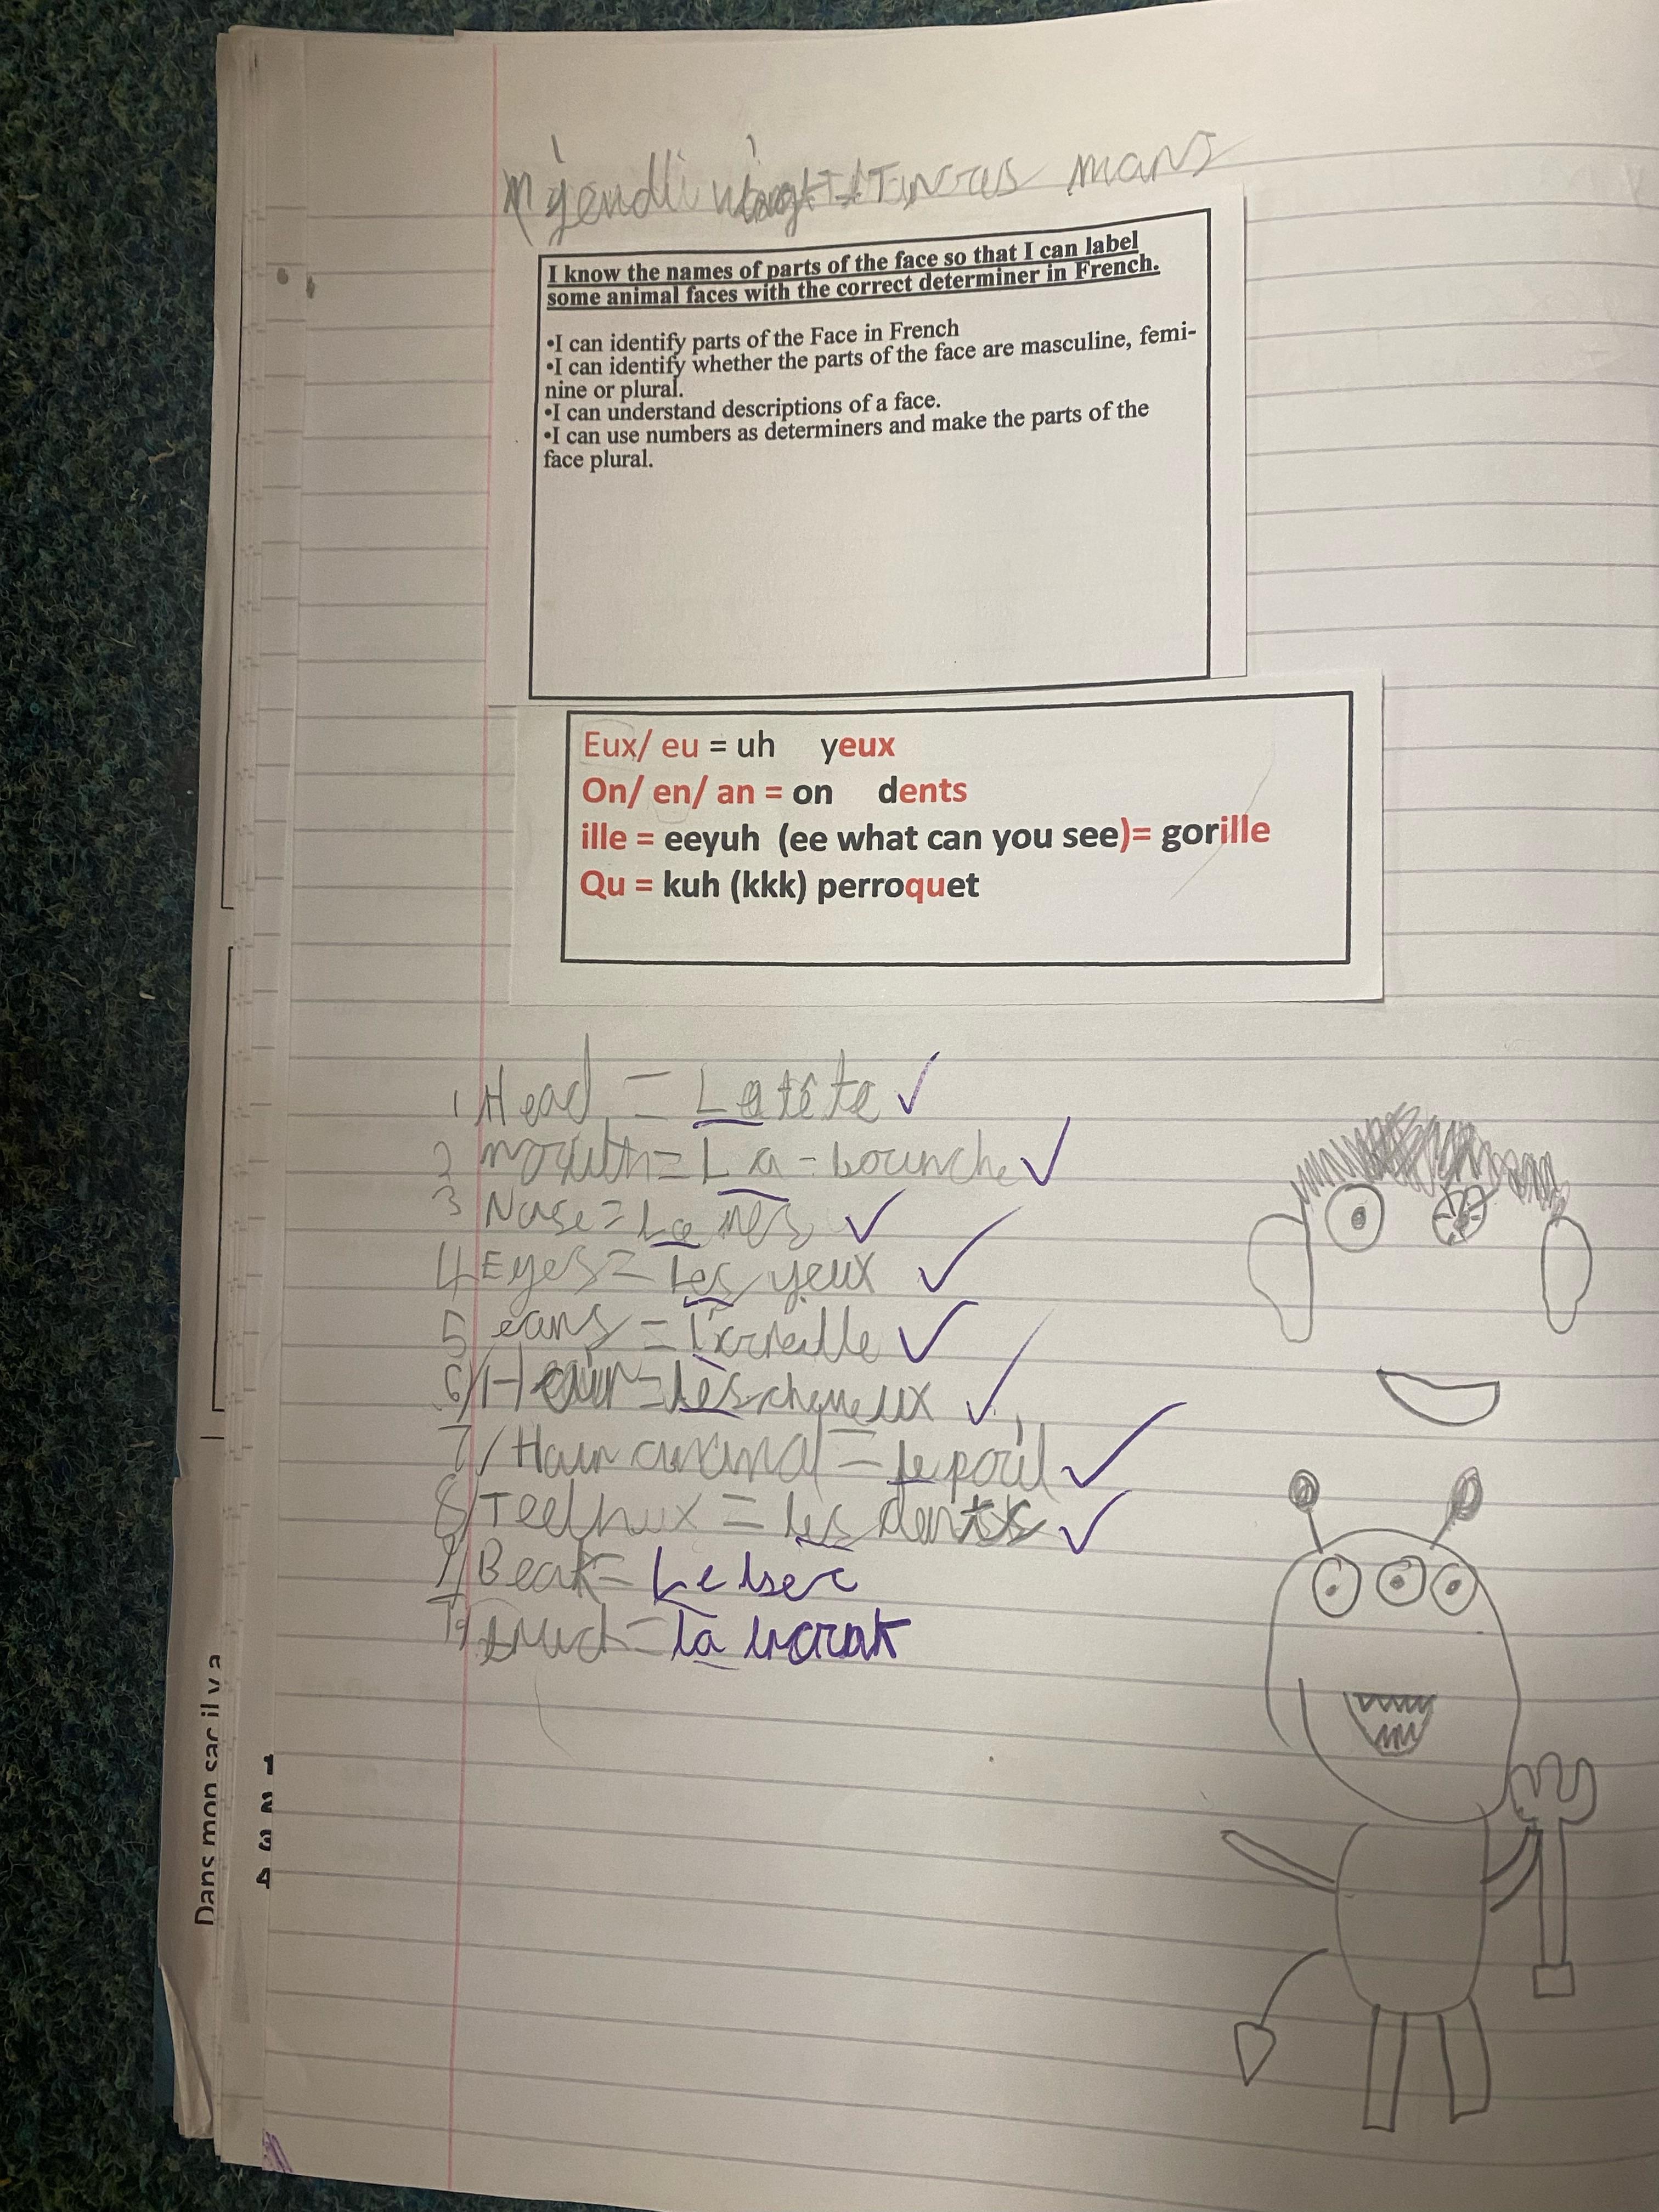 mars
I know the names of parts of the face so that I can label
some animal faces with the correct determiner in French.
•I can identify parts of the Face in French
•I can identify whether the parts of the face are masculine, femi-
nine or plural.
•I can understand descriptions of a face.
•I can use numbers as determiners and make the parts of the
face plural.
Eux/ eu = uh yeux
On/ en/ an = on dents
ille = eeyuh (ee what can you see)= gorille
Qu = kuh (kkk) perroquet
1 Head = La tête
2 mouth = La - bounche
3 Nose = Le nes
4 Eyes = Les yeux
5 ears = L'oreille
6/ Hair = Les cheveux
7/ Hair animal = le poil
8/ Teeth = les dents
9/ Beak = Le bec
= la
Dans mon sac il y a
1
2
3
4